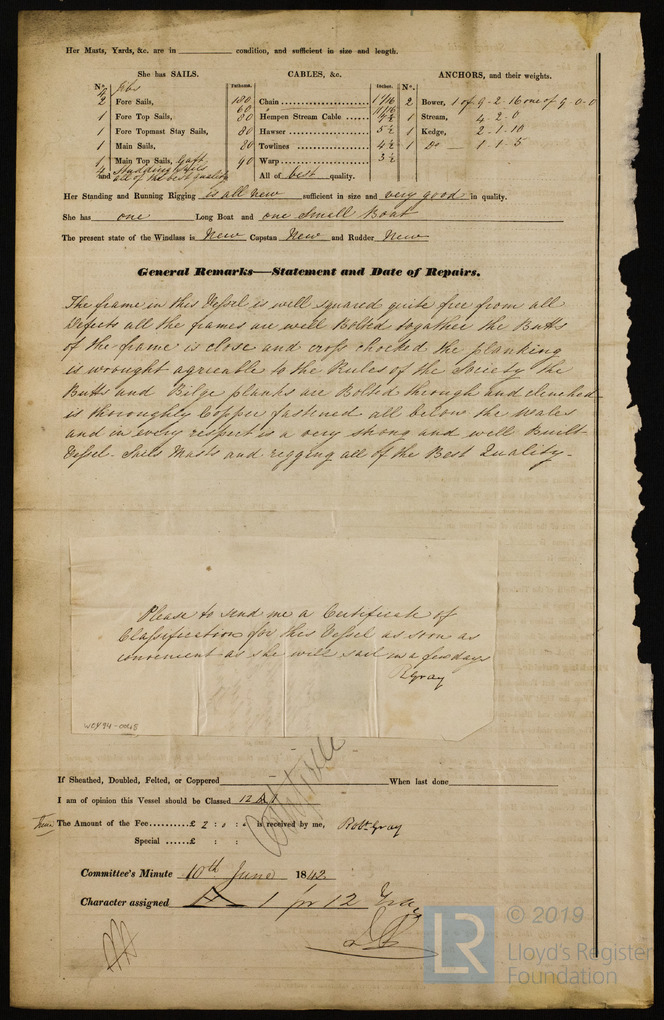 Her Masts, Yards, &c. are in condition, and sufficient in size and length.
She has SAILS. CABLES, &c. ANCHORS, and their weights.
N°. Fathoms. Inches. N°.
4 Jibs
2 Fore Sails, 180 Chain 1 7/16 2 Bower, 1 of 9-2-16 one of 9-0-0
60 11/16
1 Fore Top Sails, 80 Hempen Stream Cable 1 Stream, 4-2-0
1 Fore Topmast Stay Sails, 80 Hawser 5½ 1 Kedge, 2-1-10
1 Main Sails, 20 Towlines 4½ 1 Do - 1-1-5
1 Main Top Sails, Gaft 90 Warp 3½
4 Studding Sails
and all of the best quality All of best quality.
Her Standing and Running Rigging is all new sufficient in size and very good in quality.
She has one Long Boat and one Small Boat
The present state of the Windlass is New Capstan New and Rudder New
General Remarks—Statement and Date of Repairs.
The frame in this Vessel is well squared quite free from all
Defects all the frames are well Bolted togather the Butts
of the frame is close and cross chocked the planking
is wrought agreable to the Rules of the Society the
Butts and Bilge planks are Bolted through and clenched
is thoroughly Copper fastened all below the wales
and in every respect is a very strong and well Built
Vessel - Sails Masts and regging all of the Best Quality -
Please to send me a Certificate of
Classification for this Vessel as soon as
convenient as she will sail in a few days
R Gray
WCY94-0068
If Sheathed, Doubled, Felted, or Coppered When last done
I am of opinion this Vessel should be Classed 12 A 1
The Amount of the Fee £ 2 : : is received by me, Robt Gray
Special £ : :
Committee's Minute 10th June 1842
Character assigned A 1 for 12 Yrs
© 2019
LR Lloyd's Register
Foundation